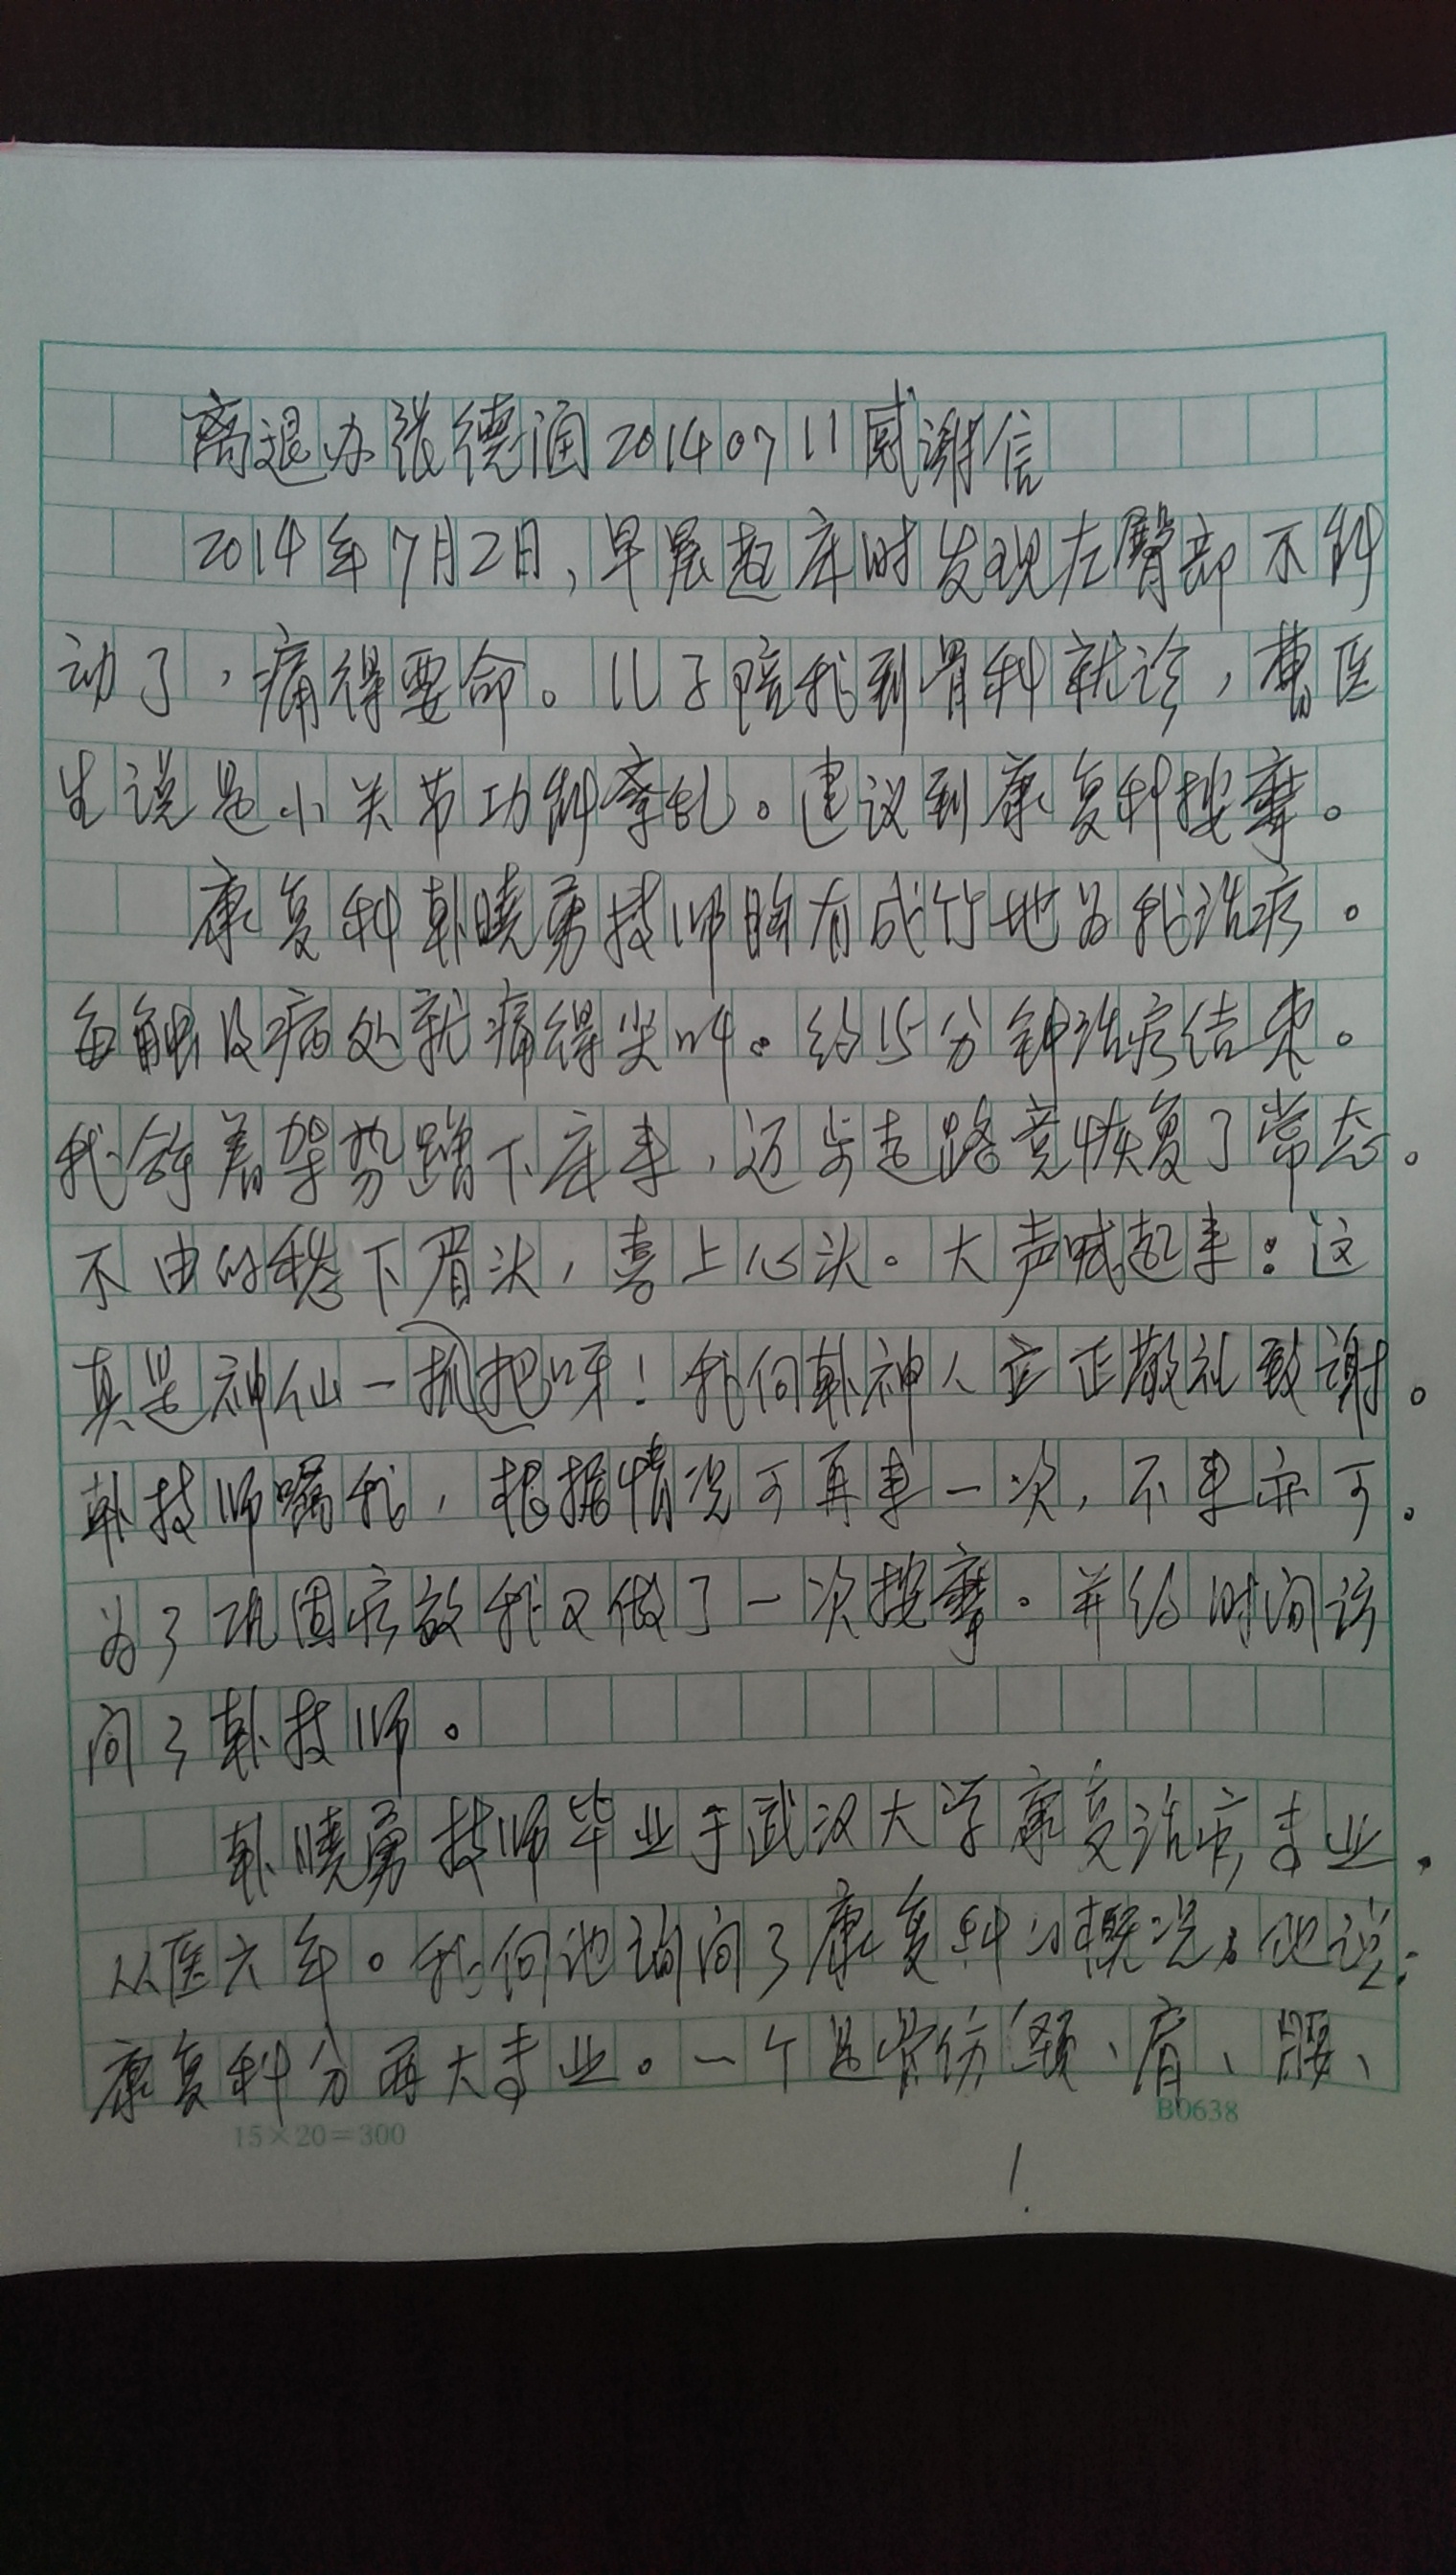 离退办张德涵20140711感谢信
2014年7月2日,早晨起床时发现左臀部不能
动了,痛得要命。儿子陪我到骨科就诊,黄医
生说是小关节功能紊乱。建议到康复科按摩。
康复科韩晓勇技师胸有成竹地为我治疗。
每触及痛处就痛得尖叫。约15分钟治疗结束。
我拿着架势蹭下床来,迈步走路竟恢复了常态。
不由的愁下眉头,喜上心头。大声喊起来:这
真是神仙一抓把呀!我向韩神人立正敬礼致谢。
韩技师嘱我,根据情况可再来一次,不来亦可。
为了巩固疗效我又做了一次按摩。并约时间访
问了韩技师。
韩晓勇技师毕业于武汉大学康复治疗专业,
从医六年。我向他询问了康复科的概况。他说:
康复科分两大专业。一个是骨伤(颈、肩、腰、
15×20=300
B0638
1.